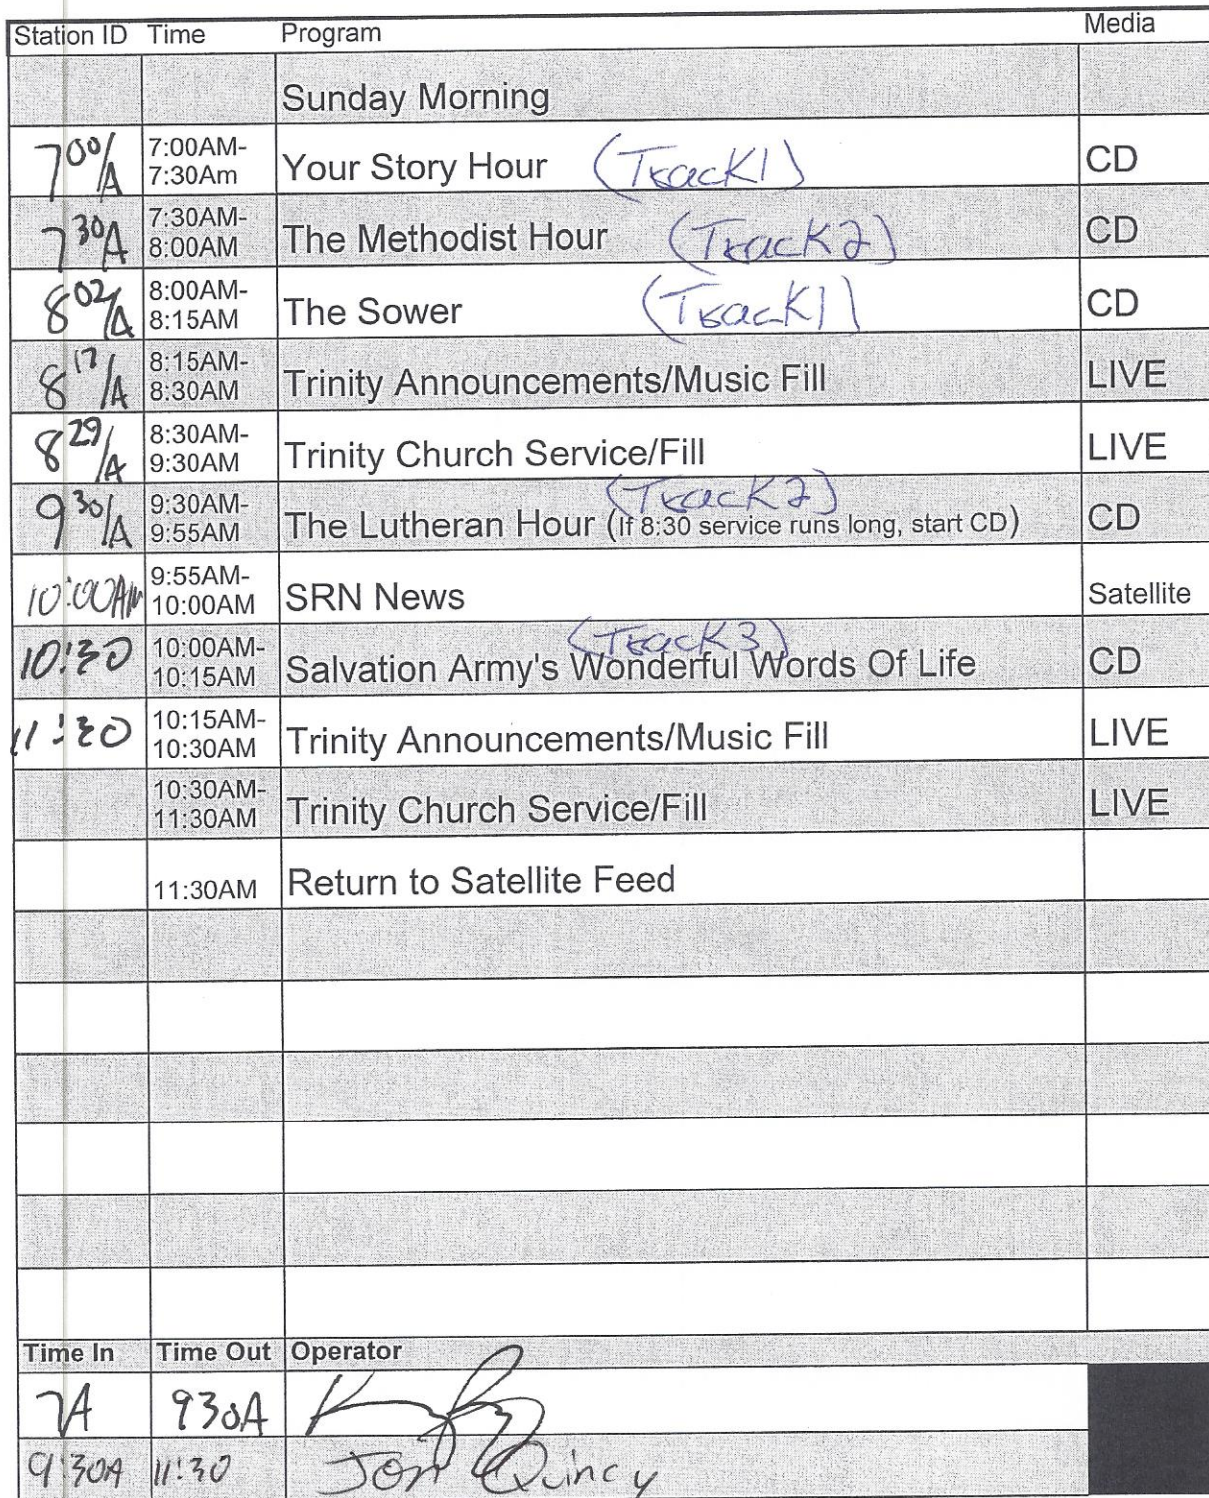 Station ID Time Program Media
Sunday Morning
7 00/A 7:00AM-7:30Am Your Story Hour (Track 1) CD
7 30A 7:30AM-8:00AM The Methodist Hour (Track 2) CD
8 02/A 8:00AM-8:15AM The Sower (Track 1) CD
8 17/A 8:15AM-8:30AM Trinity Announcements/Music Fill LIVE
8 29/A 8:30AM-9:30AM Trinity Church Service/Fill LIVE
(Track 2)
9 30/A 9:30AM-9:55AM The Lutheran Hour (If 8:30 service runs long, start CD) CD
10:00AM 9:55AM-10:00AM SRN News Satellite
(Track 3)
10:30 10:00AM-10:15AM Salvation Army's Wonderful Words Of Life CD
11:30 10:15AM-10:30AM Trinity Announcements/Music Fill LIVE
10:30AM-11:30AM Trinity Church Service/Fill LIVE
11:30AM Return to Satellite Feed
Time In Time Out Operator
7A 930A
9:30A 11:30 Jon Quincy